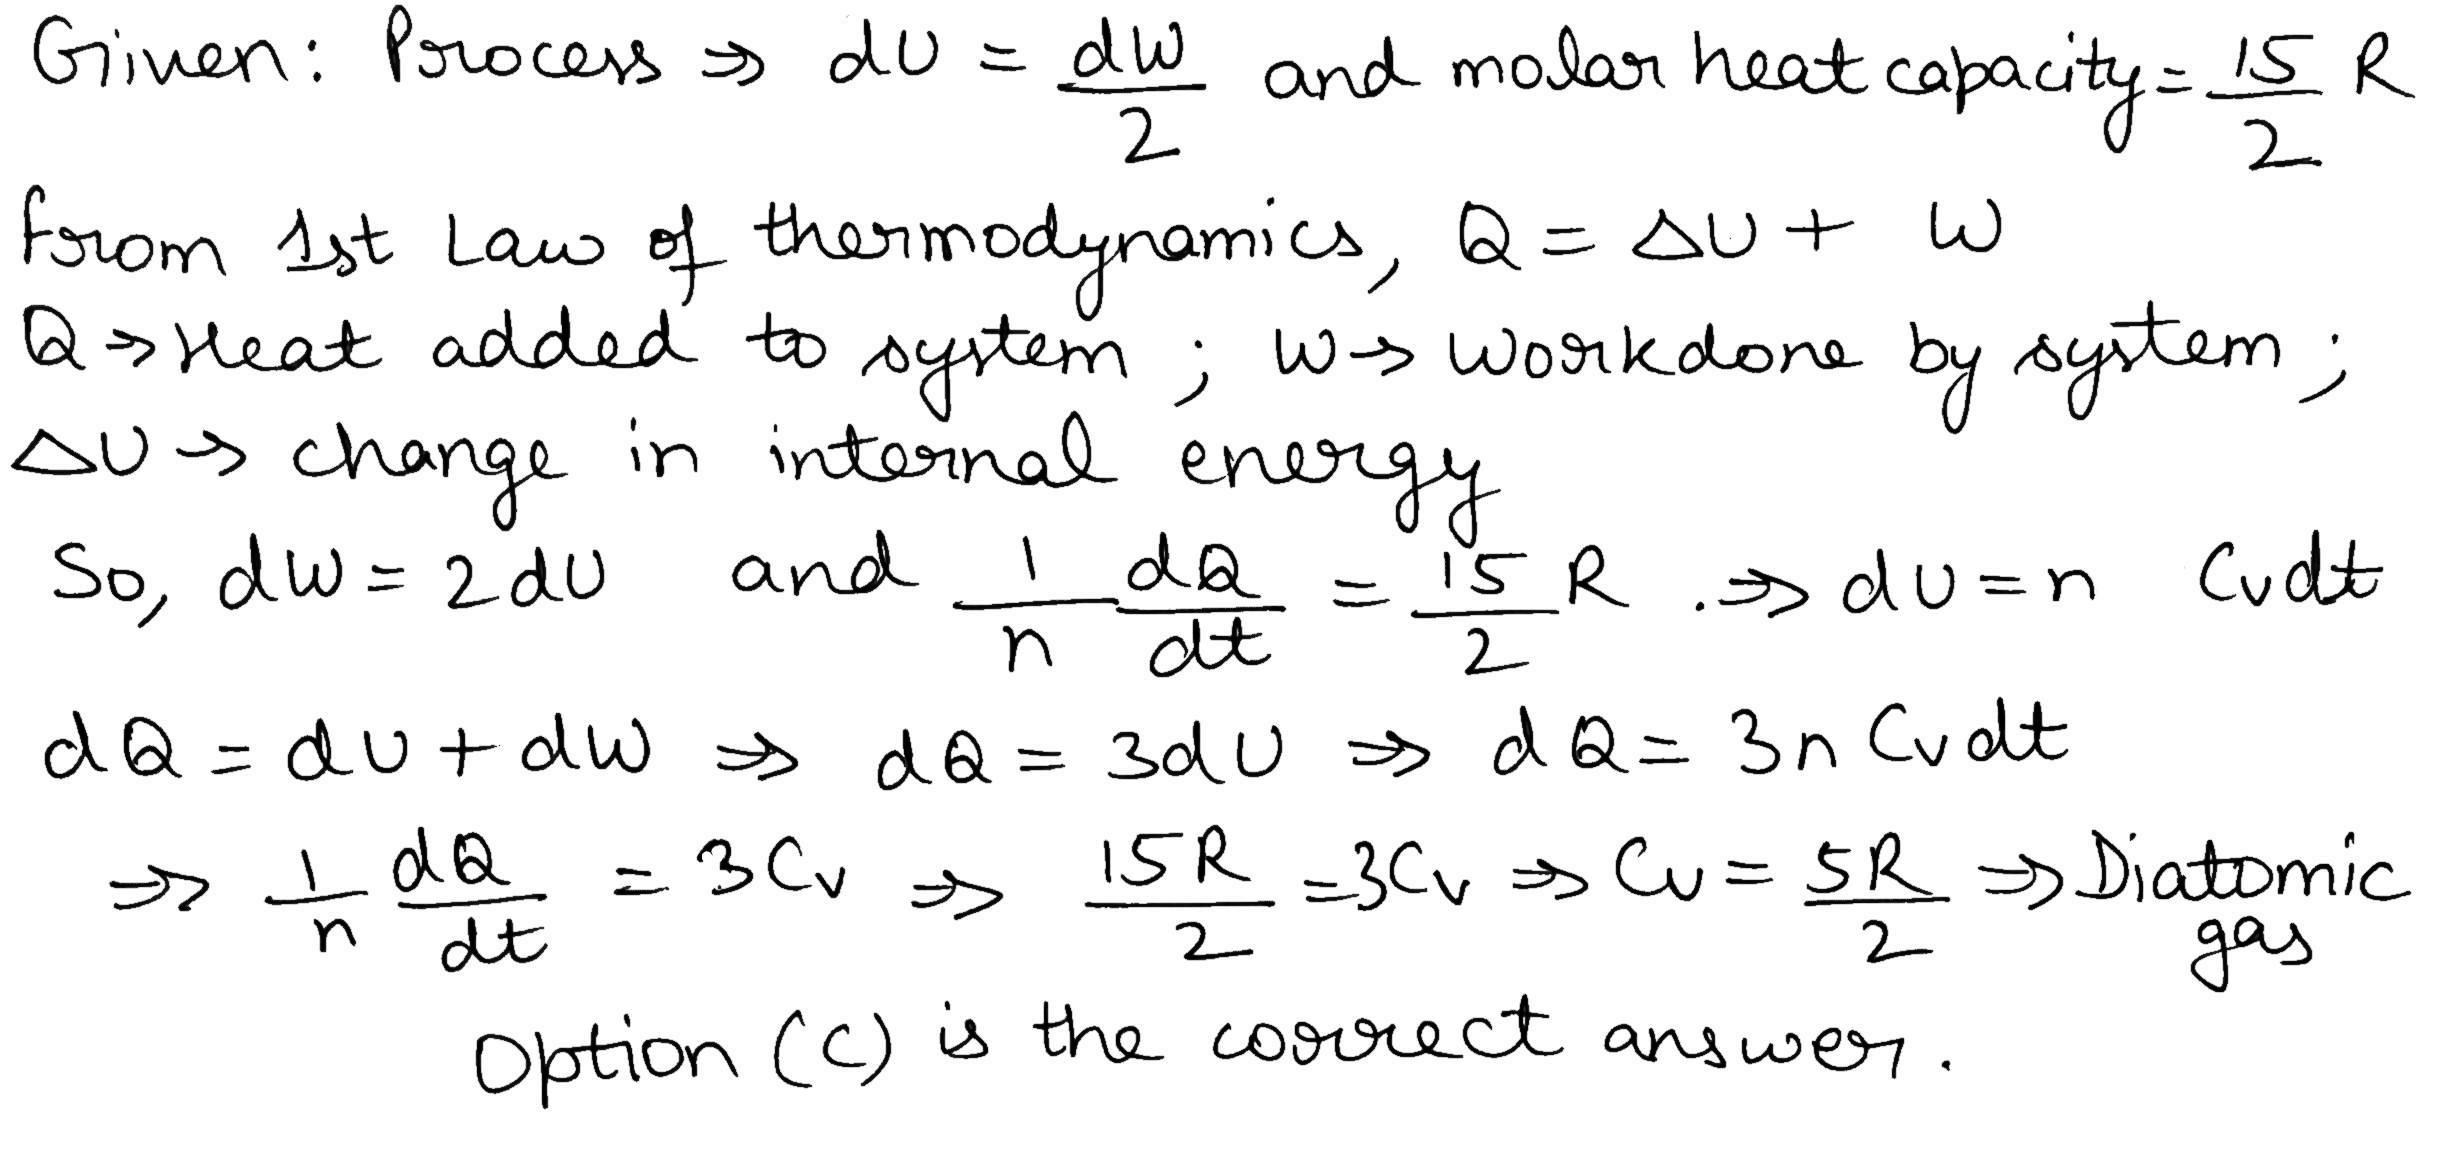 Given: Process ⇒ dU = dW/2 and molar heat capacity = 15/2 R
From 1st Law of thermodynamics, Q = ΔU + W
Q → Heat added to system ; W → Workdone by system ;
ΔU → change in internal energy
So, dW = 2dU and 1/n dQ/dt = 15/2 R . ⇒ dU = n Cvdt
dQ = dU + dW ⇒ dQ = 3dU ⇒ dQ = 3n Cvdt
⇒ 1/n dQ/dt = 3Cv ⇒ 15R/2 = 3Cv ⇒ Cv = 5R/2 ⇒ Diatomic gas
Option (C) is the correct answer.